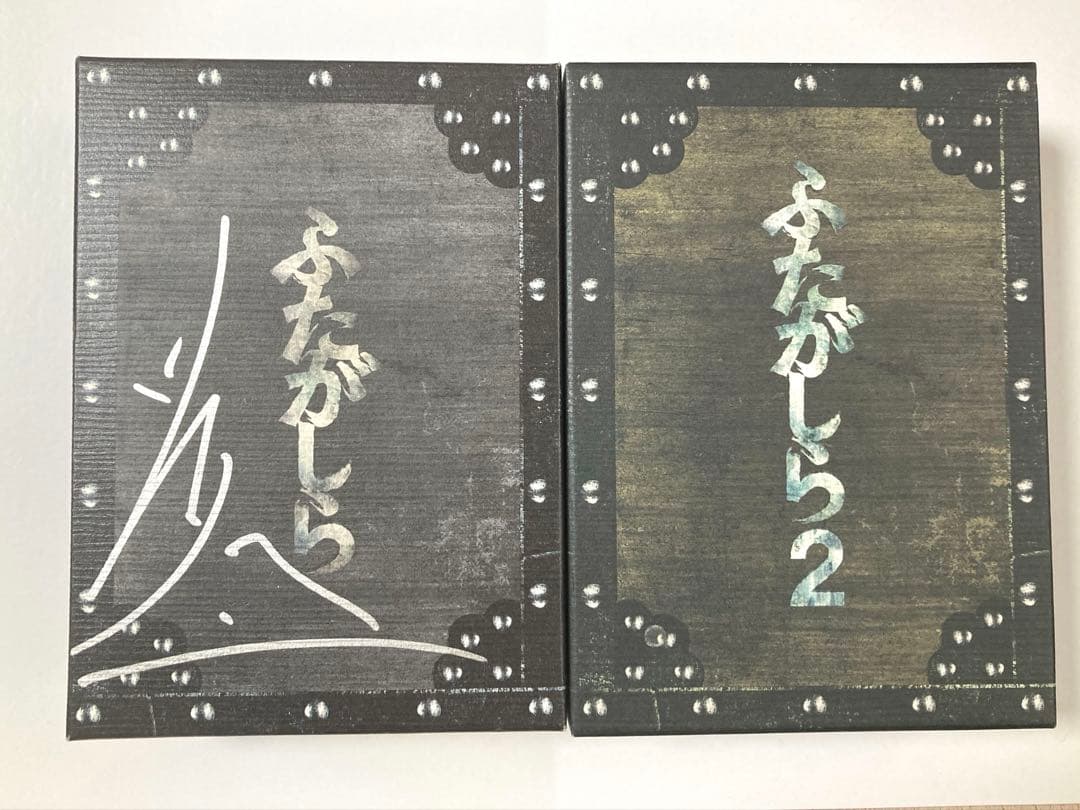 ふたがしら
ふたがしら2